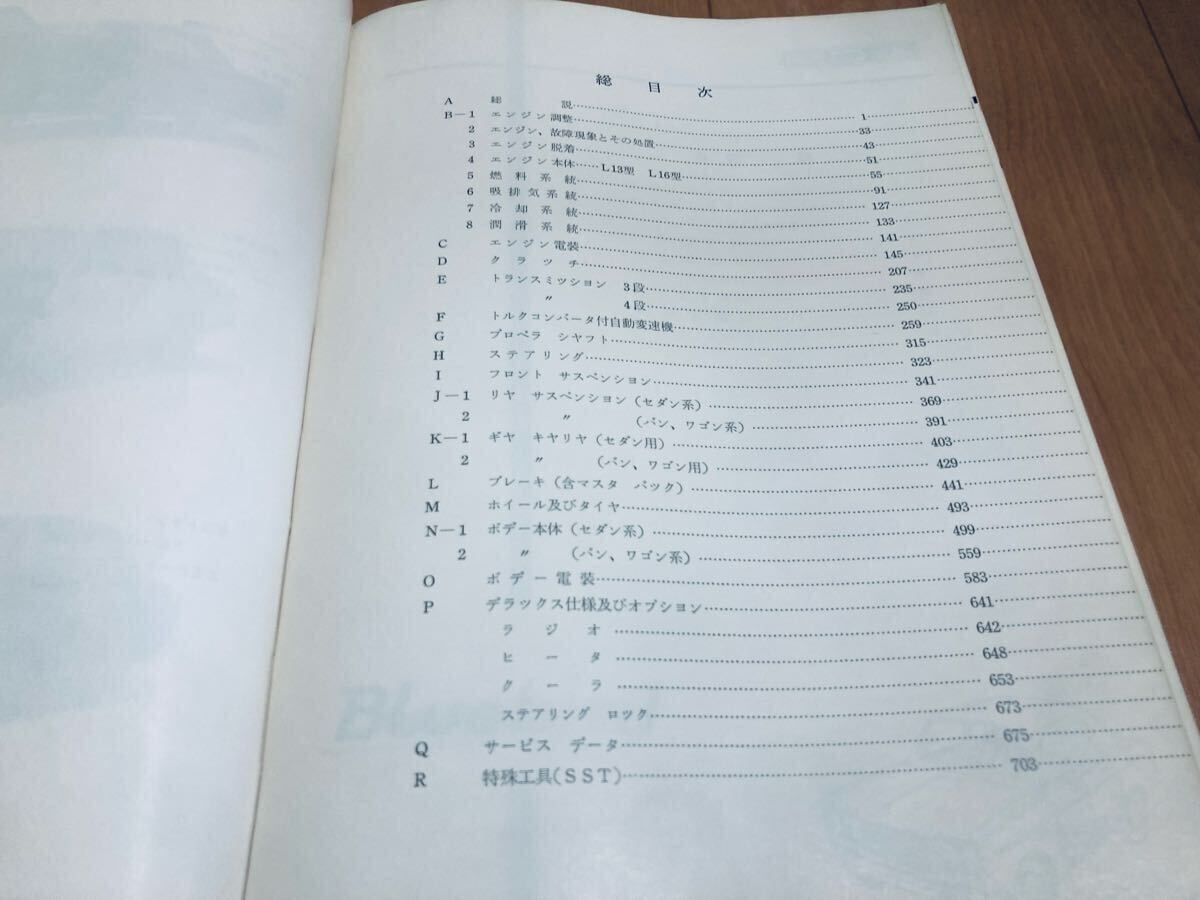 総目次
A 総説 1
B－1 エンジン調整 33
2 エンジン、故障現象とその処置 43
3 エンジン脱着 51
4 エンジン本体……L13型 L16型 55
5 燃料系統 91
6 吸排気系統 127
7 冷却系統 133
8 潤滑系統 141
C エンジン電装 145
D クラッチ 207
E トランスミッション 3段 235
〃 4段 250
F トルクコンバータ付自動変速機 259
G プロペラ シャフト 315
H ステアリング 323
I フロント サスペンション 341
J－1 リヤ サスペンション（セダン系） 369
2 〃 （バン、ワゴン系） 391
K－1 ギヤ キヤリヤ（セダン用） 403
2 〃 （バン、ワゴン用） 429
L ブレーキ（含マスタ バック） 441
M ホイール及びタイヤ 493
N－1 ボデー本体（セダン系） 499
2 〃 （バン、ワゴン系） 559
O ボデー電装 583
P デラックス仕様及びオプション 641
ラジオ 642
ヒータ 648
クーラ 653
ステアリング ロック 673
Q サービス データ 675
R 特殊工具（SST） 703